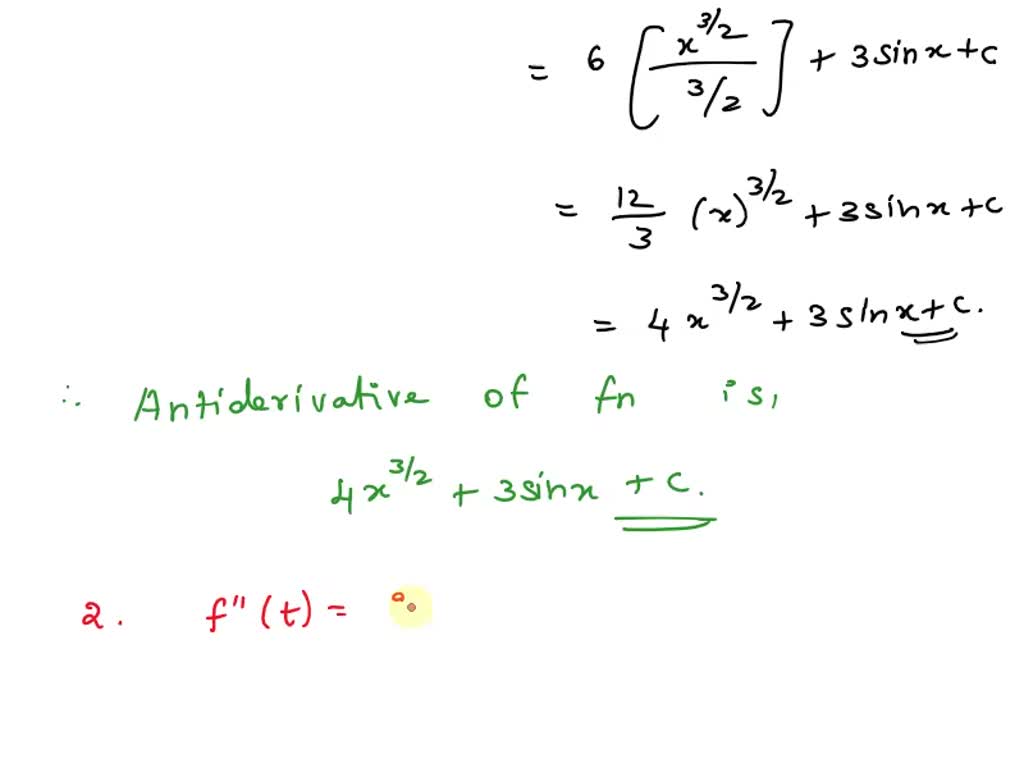 = 6 [ x^3/2 / 3/2 ] + 3 sin x + c
= 12/3 (x)^3/2 + 3 sin x + c
= 4 x^3/2 + 3 sin x + c.
∴ Antiderivative of fn is,
4x^3/2 + 3 sin x + c.
2. f"(t) =